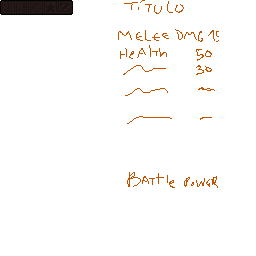 TÍTULO
MELEE DMG 15
HeAlth 50
30
BAttle POWER